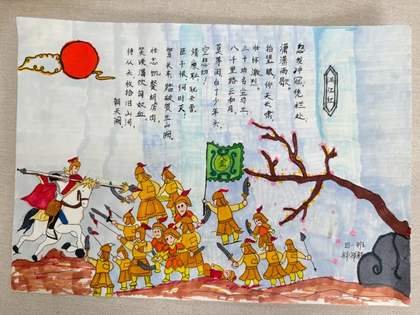 满江红
怒发冲冠凭栏处
潇潇雨歇。
抬望眼仰天长啸,
壮怀激烈。
三十功名尘与土,
八千里路云和月。
莫等闲白了少年头,
空悲切!
靖康耻犹未雪。
臣子恨何时灭!
驾长车踏破贺兰山缺。
壮志饥餐胡虏肉,
笑谈渴饮匈奴血。
待从头收拾旧山河,
朝天阙。
四一班